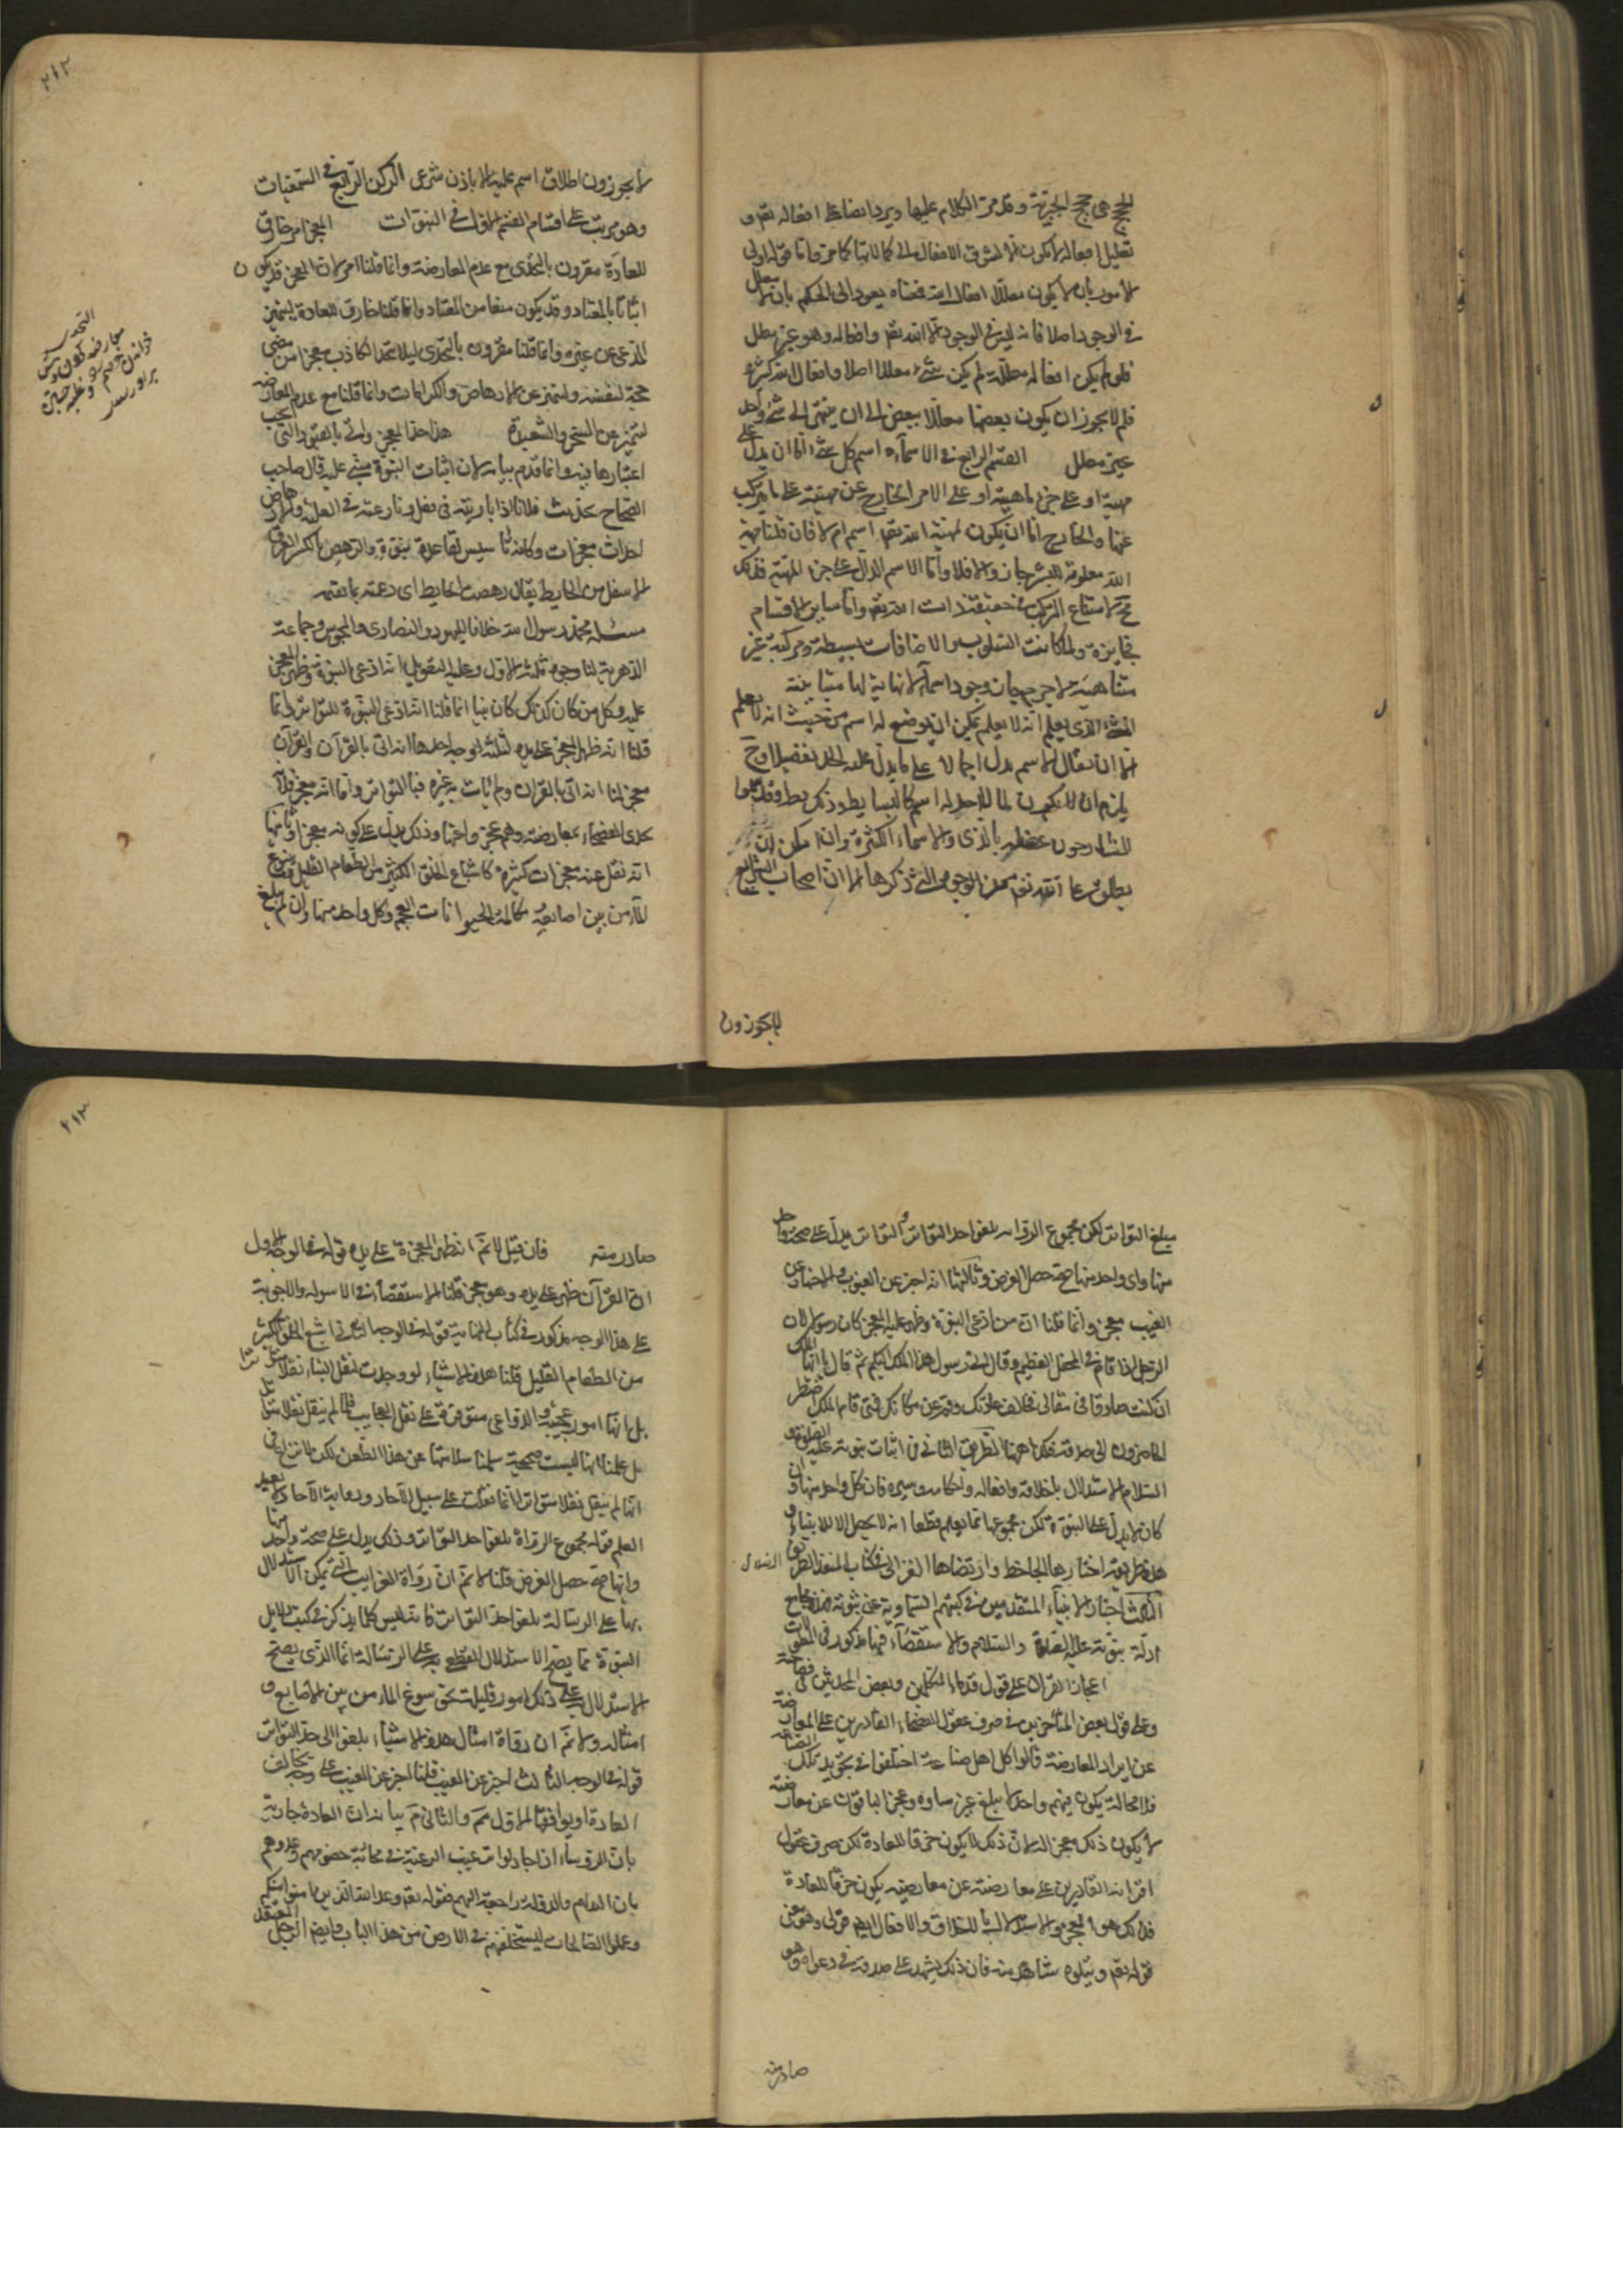 الحجج هي حجج الجبرية وقد مر الكلام عليها ويرد ايضا على افعاله تعالى و
تعليل افعاله لا يكون
لامور بان لا يكون معللا
في الوجود اصلا فانه ليس في الوجود الا الله تعالى وافعاله وهو غير معلل
فلو لم يكن افعاله معللة لم يكن شيء معللا اصلا وافعال الله كثيرة
فلم لا يجوز ان يكون بعضها معللا ببعض الى ان ينتهي الى شيء واحد
غير معلل القسم الرابع في الاسماء اسم كل شيء اما ان يدل على
مهيته او على جزء ماهيته او على الامر الخارج عن مهيته على ما يتركب
عنها والخارج اما ان يكون لمهية الله تعالى اسم ام لا فان قلنا مهية
الله معلومة للبشر جاز والا فلا واما الاسم الدال على جزء المهية فذلك
مح لامتناع التركيب في حقيقة ذات الله تعالى واما ساير الاقسام
فجايزة ولما كانت السلوب والاضافات بسيطة ومركبة غير
متناهية لا جرم جاز وجود اسماء لا نهاية لها متباينة
الشيء الذي يعلم انه لا يعلم يمكن ان يوضع له اسم من حيث انه لا يعلم
الا ان يقال الاسم يدل اجمالا على ما يدل عليه الحد تفصيلا وح
يلزم ان لا يكون لما لا حد له اسم كالبسايط وذلك بط
يطلق
لا يجوزون
٢١٢
لا يجوزون اطلاق اسم عليه الا باذن شرعي الركن الرابع في السمعيات
وهو مرتب على اقسام القسم الاول في النبوات المعجز امر خارق
للعادة مقرون بالتحدي مع عدم المعارضة وانما قلنا امر لان المعجز قد يكون
اثباتا بالمعتاد وقد يكون منعا من المعتاد وانما قلنا خارق للعادة ليتميز
المدعي عن غيره وانما قلنا مقرون بالتحدي ليلا يتخذ الكاذب معجز من مضى
حجة لنفسه وليتميز عن الارهاص والكرامات وانما قلنا مع عدم المعارضة
ليتميز عن السحر والشعبذة هذا حد المعجز واتى بالقيود التي يجب
اعتبارها فيه وانما قدم بيانه لان اثبات النبوة مبني عليه قال صاحب
الصحاح تحديت فلانا اذا باريته في فعل ونازعته في الغلبة والارهاص
احداث معجزات وكانه تأسيس لقاعدة نبوة والرهص بالكسر العرق
الاسفل من الحايط يقال رهصت الحايط اى دعمته بما يقيمه
مسئلة محمد رسول الله خلافا لليهود والنصارى والمجوس وجماعة
الدهرية لنا وجوه ثلثة الاول وعليه التعويل انه ادعى النبوة وظهر المعجز
عليه وكل من كان كذلك كان نبيا انما قلنا انه ادعى النبوة للتواتر وانما
قلنا انه ظهر المعجز على يده لثلثة اوجه احدها انه اتى بالقرآن والقرآن
معجز اما انه اتى بالقران ولم يات به غيره فبالتواتر واما انه معجز فلانه
تحدى الفصحاء بمعارضته وهم عجزوا عنها وذلك يدل على كونه معجزا وثانيها
انه نقل عنه معجزات كثيرة كاشباع الخلق الكثير من الطعام القليل ونبوع
الماء من بين اصابعه ومكالمة الحيوانات العجم وكل واحد منها وان لم يبلغ
مبلغ التواتر لكن مجموع الرواة بلغوا حد التواتر والتواتر يدل على صحة واحد
منها واى واحد منها صح حصل الغرض وثالثها انه اخبر عن الغيوب والاخبار عن
الغيب معجز وانما قلنا ان من ادعى النبوة وظهر عليه المعجز كان رسولا لان
الرجل اذا قام في المحفل العظيم وقال اني رسول هذا الملك اليكم ثم قال يا ايها الملك
ان كنت صادقا في مقالي فخالف عادتك وقم عن مكانك فمتى قام الملك اضطر
الحاضرون الى صدقه فكذا ههنا الطريق الثاني في اثبات نبوته عليه الصلوة و
السلام الاستدلال باخلاقه وافعاله واحكامه وسيره فان كل واحد منها وان
كان لا يدل على النبوة لكن مجموعها مما يعلم قطعا انه لا يحصل الا للانبياء و
هذه طريقة اختارها الجاحظ وارتضاها الغزالي في كتاب المنقذ الطريق
الضلال
الثالث اخبار الانبياء المتقدمين في كتبهم السماوية عن نبوته فهذه مجامع
ادلة نبوته عليه الصلوة والسلام والاستقصاء فيها مذكور في المطولات
اعجاز القران على قول قدماء المتكلمين وبعض المحدثين في فصاحته
وعلى قول بعض المتأخرين في صرف عقول الفصحاء القادرين على المعارضة
عن ايراد المعارضة قالوا كل اهل صناعة اختلفوا في تجويد تلك الصناعة
فلا محالة يكون فيهم واحد لا يبلغ غيره شاوه وعجز الباقون عن معارضته
لا يكون ذلك معجزا له لان ذلك لا يكون خرقا للعادة لكن صرف عقول
اقرانه القادرين على معارضته عن معارضته يكون خرقا للعادة
فذلك هو المعجز والاستدلال بالاخلاق والافعال ايضا قوي وهو معنى
قوله تعالى ويتلوه شاهد منه فان ذلك يشهد على صدقه في دعواه وهو
صادر منه
٢١٣
صادر منه فان قيل لا نم انه ظهر المعجزة على يده قوله في الوجه الاول
ان القرآن ظهر على يده وهو معجز قلنا الاستقصاء في الاسولة والاجوبة
على هذا الوجه مذكور في كتاب النهاية قوله في الوجه الثاني اشبع الخلق الكثير
من الطعام القليل قلنا هذه الاشياء لو وجدت لنقل الينا نقلا متواترا
بل انها امور عجيبة والدواعي متوفرة على نقل العجايب فلما لم ينقل نقلا متواترا
بل علمنا انها ليست صحيحة سلمنا سلامتها عن هذا الطعن لكن لا نزاع في
انها لم ينقل نقلا متواترا انما نقلت على سبيل الآحاد ورواية الآحاد لا يفيد
العلم قوله مجموع الرواة بلغوا حد التواتر وذلك يدل على صحة واحد منها
وايها صح حصل الغرض قلنا لا نم ان رواة الغرايب التي يمكن الاستدلال
بها على الرسالة بلغوا حد التواتر فانه ليس كل ما يذكر في كتب دلايل
النبوة مما يصح الاستدلال القطعي به على الرسالة انما الذي يصح
الاستدلال به على ذلك امور قليلة كنبوع الماء من بين الاصابع و
امثاله ولا نم ان رواة امثال هذه الاشياء بلغوا الى حد التواتر
قوله في الوجه الثالث اخبر عن الغيب قلنا اخبر عن الغيب على وجه يخالف
العادة او يوافقها الاول مم والثاني م بيانه ان العادة جارية
بان الرؤساء
بان الدولة راجعة اليهم فقوله تعالى وعد الله الذين امنوا منكم
وعملوا الصالحات ليستخلفنهم في الارض من هذا الباب وايضا الرجل المعتقد